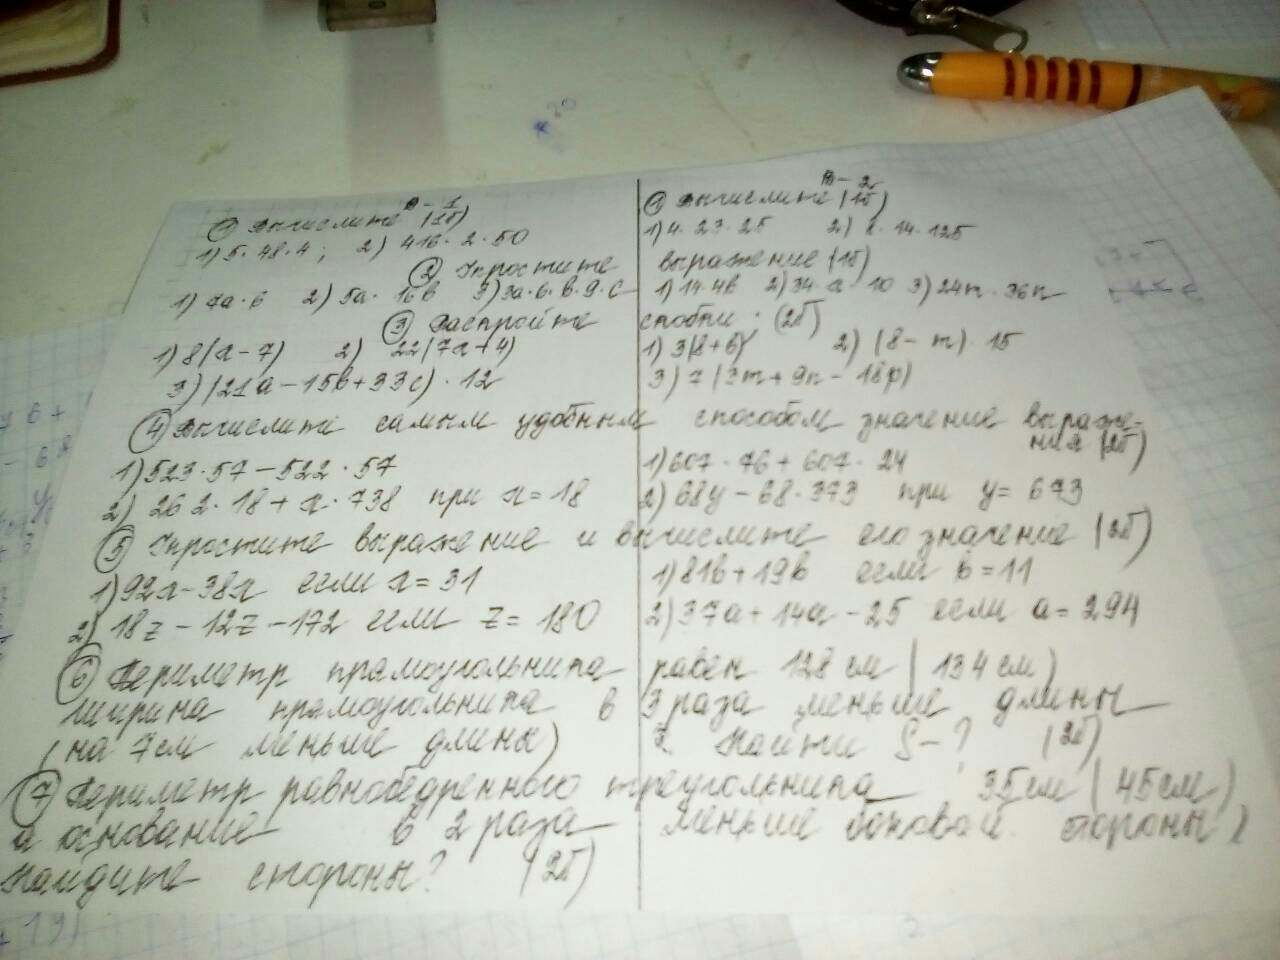 В-1
① Вычислите (1б)
1) 5·48·4; 2) 416·2·50
В-2
① Вычислите (1б)
1) 4·23·25 2) 8·14·125
② Упростите выражение (1б)
1) 7a·6 2) 5a·16в 3) 3a·6·в·9·c
1) 14·4в 2) 34·x·10 3) 24m·36n
③ Раскройте скобки: (2б)
1) 8(x-7) 2) 22(7x+4)
3) (21a-15в+33c)·12
1) 3(8+в) 2) (8-m)·15
3) 7(3m+9n-18p)
④ Вычислите самым удобным способом значение выраже-
ния (2б)
1) 523·57-522·57
2) 262·18+x·738 при x=18
1) 607·76+607·24
2) 68y-68·373 при y=673
⑤ Упростите выражение и вычислите его значение (2б)
1) 92x-38x если x=31
2) 18z-12z-172 если z=180
1) 81в+19в если в=11
2) 37a+14a-25 если a=294
⑥ Периметр прямоугольника равен 128 см (134 см)
ширина прямоугольника в 3 раза меньше длины
(на 7см меньше длины) Найти S-? (2б)
⑦ Периметр равнобедренного треугольника 35см (45см)
а основание в 2 раза меньше боковой стороны,
Найдите стороны? (2б)